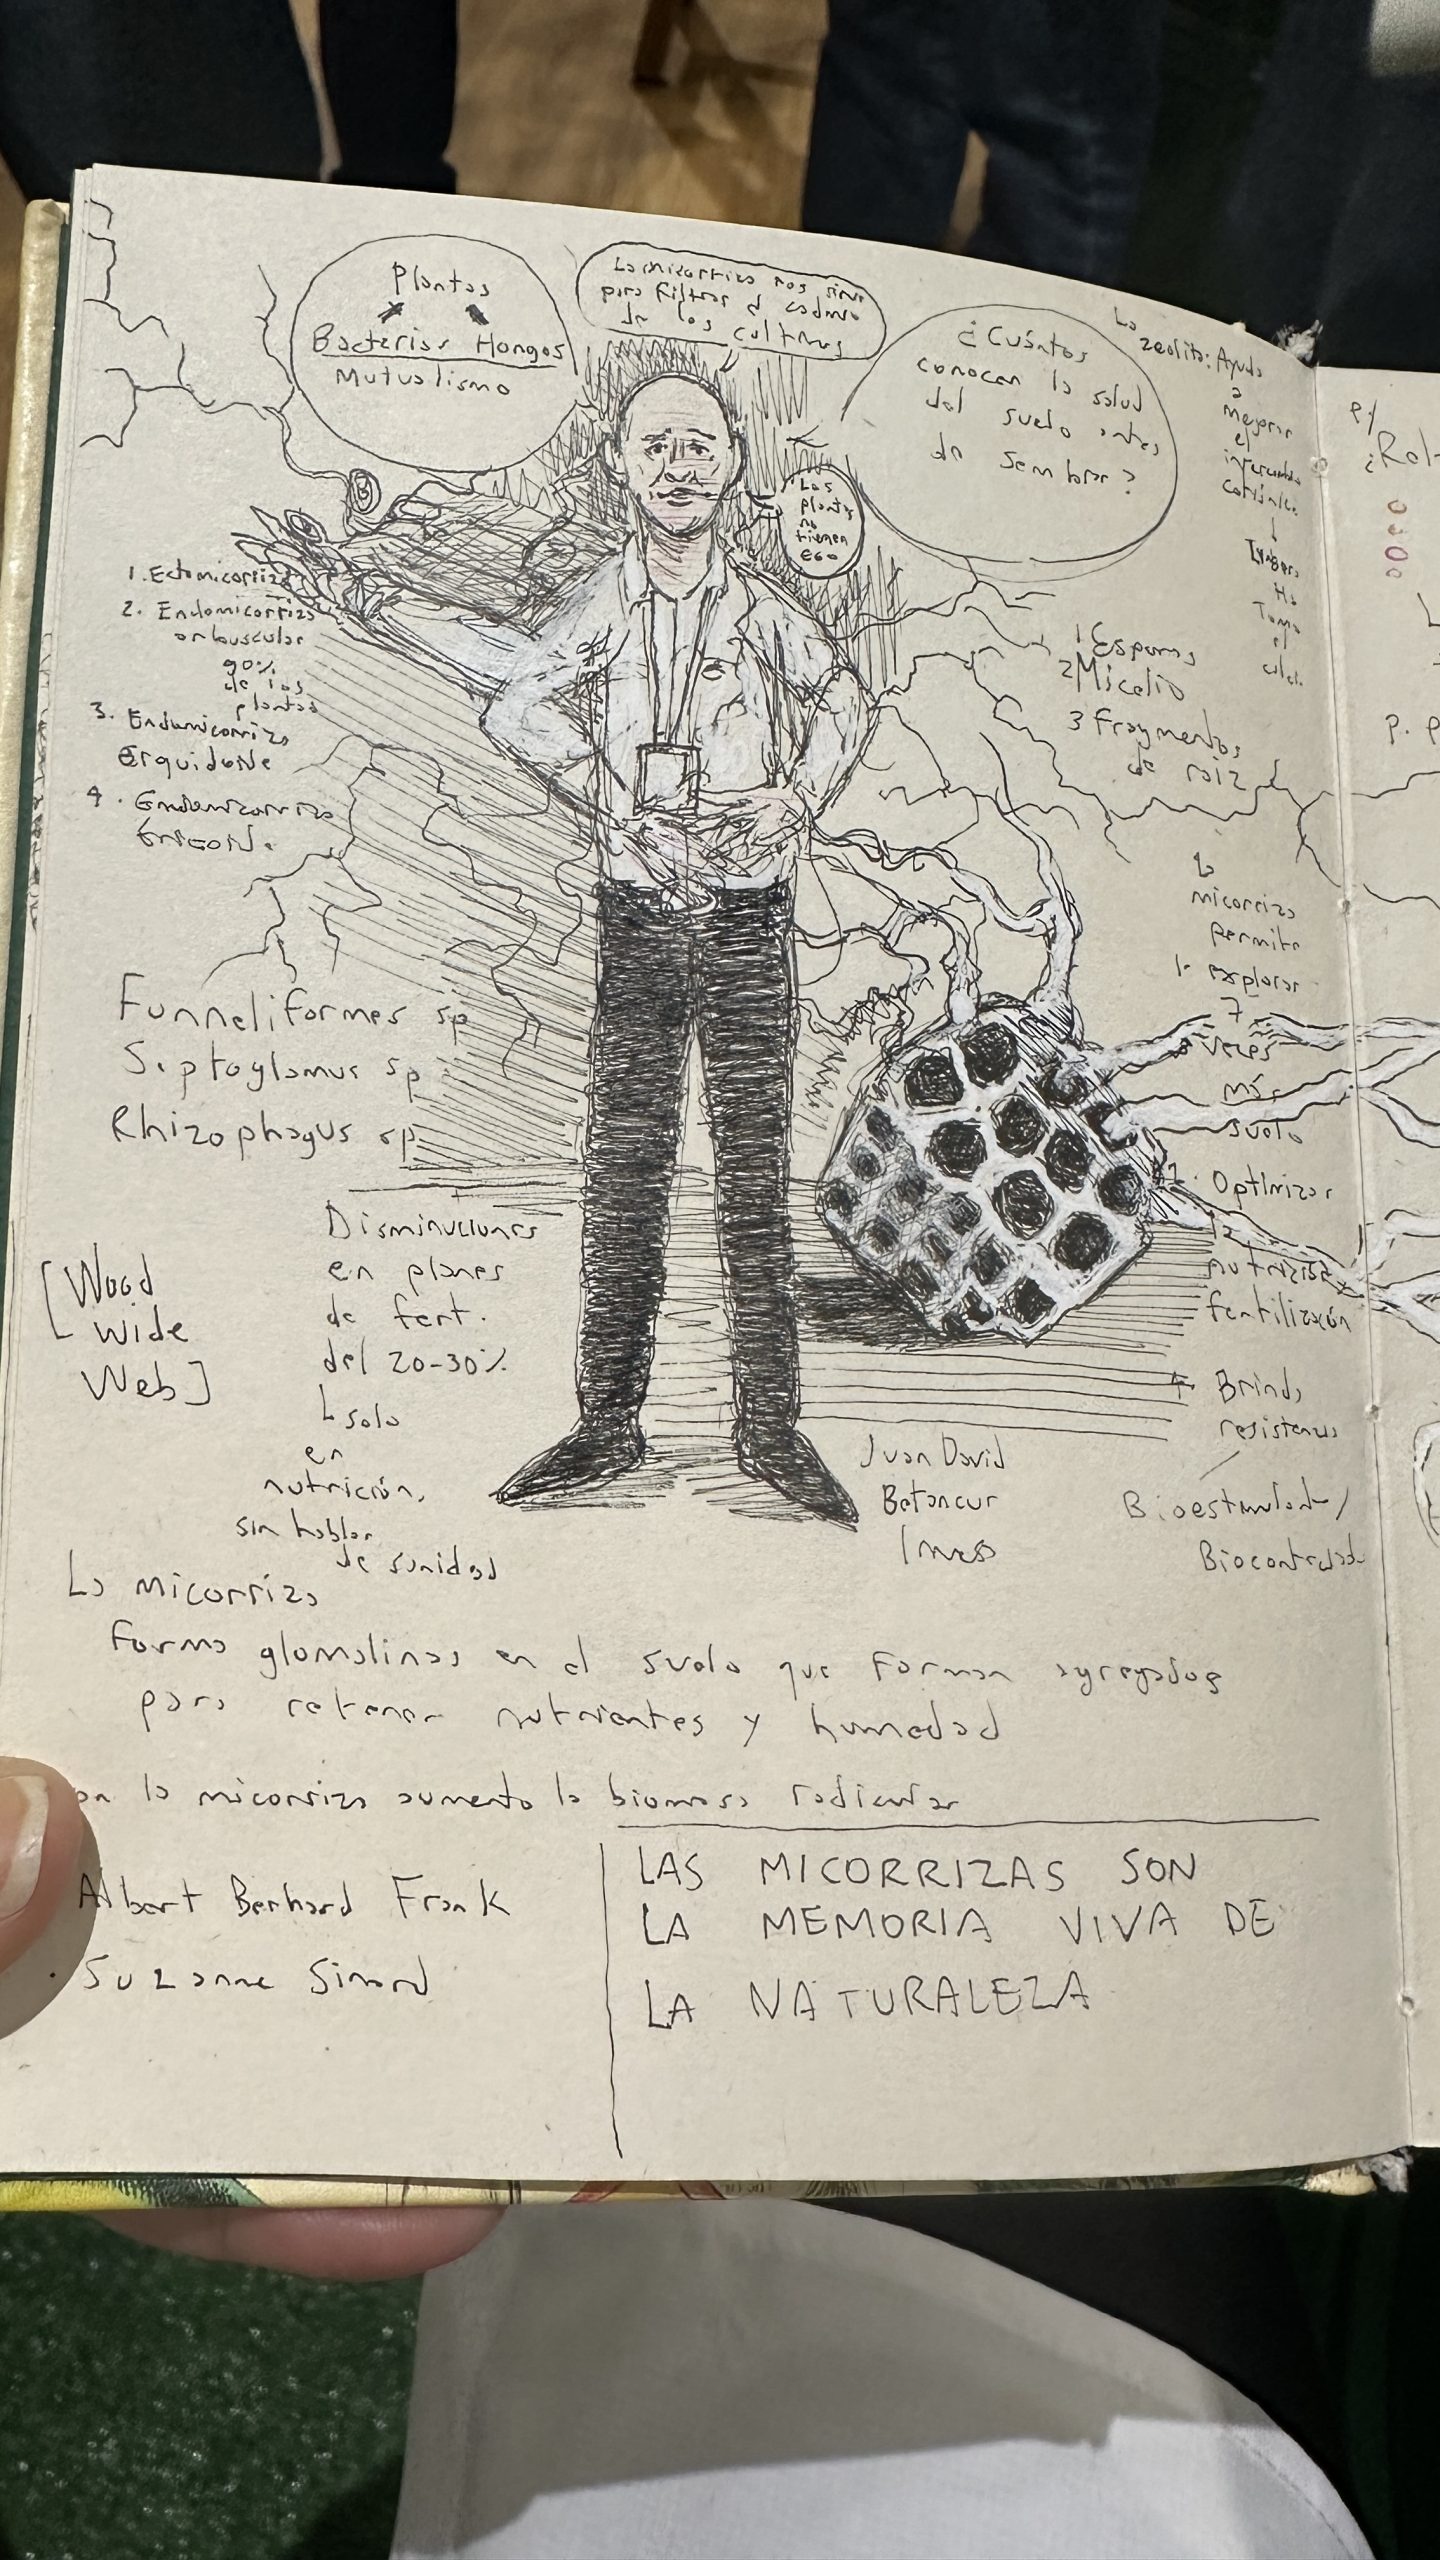 Plantas
Bacterias Hongos
Mutualismo
La micorriza nos sirve
para filtrar el cadmio
de los cultivos
¿Cuántos
conocen la salud
del suelo antes
de sembrar?
Las
plantas
no
tienen
EGO
La
zeolita: Ayuda
a
mejorar
el
intercambio
catiónico.
H+
Toma
el
1. Ectomicorriza
2. Endomicorriza
arbuscular
90%
de las
plantas
3. Endomicorriza
4. Endomicorriza
1 Esporas
2 Micelio
3 Fragmentos
de raiz
La
micorriza
permite
1. explorar
7
veces
más
suelo
2. Optimizar
la
nutrición
fertilización
Brinda
Funneliformes sp
Septoglomus sp
Rhizophagus sp
[Wood
Wide
Web]
Disminuciones
en planes
de fert.
del 20-30%
solo
en
nutrición,
sin hablar
de sanidad
Juan David
Betancur
La micorriza
forma glomalinas en el suelo que forman agregados
para retener nutrientes y humedad
la micorriza aumenta la biomasa radicular
Albert Berhard Frank
Suzanne Simard
LAS MICORRIZAS SON
LA MEMORIA VIVA DE
LA NATURALEZA